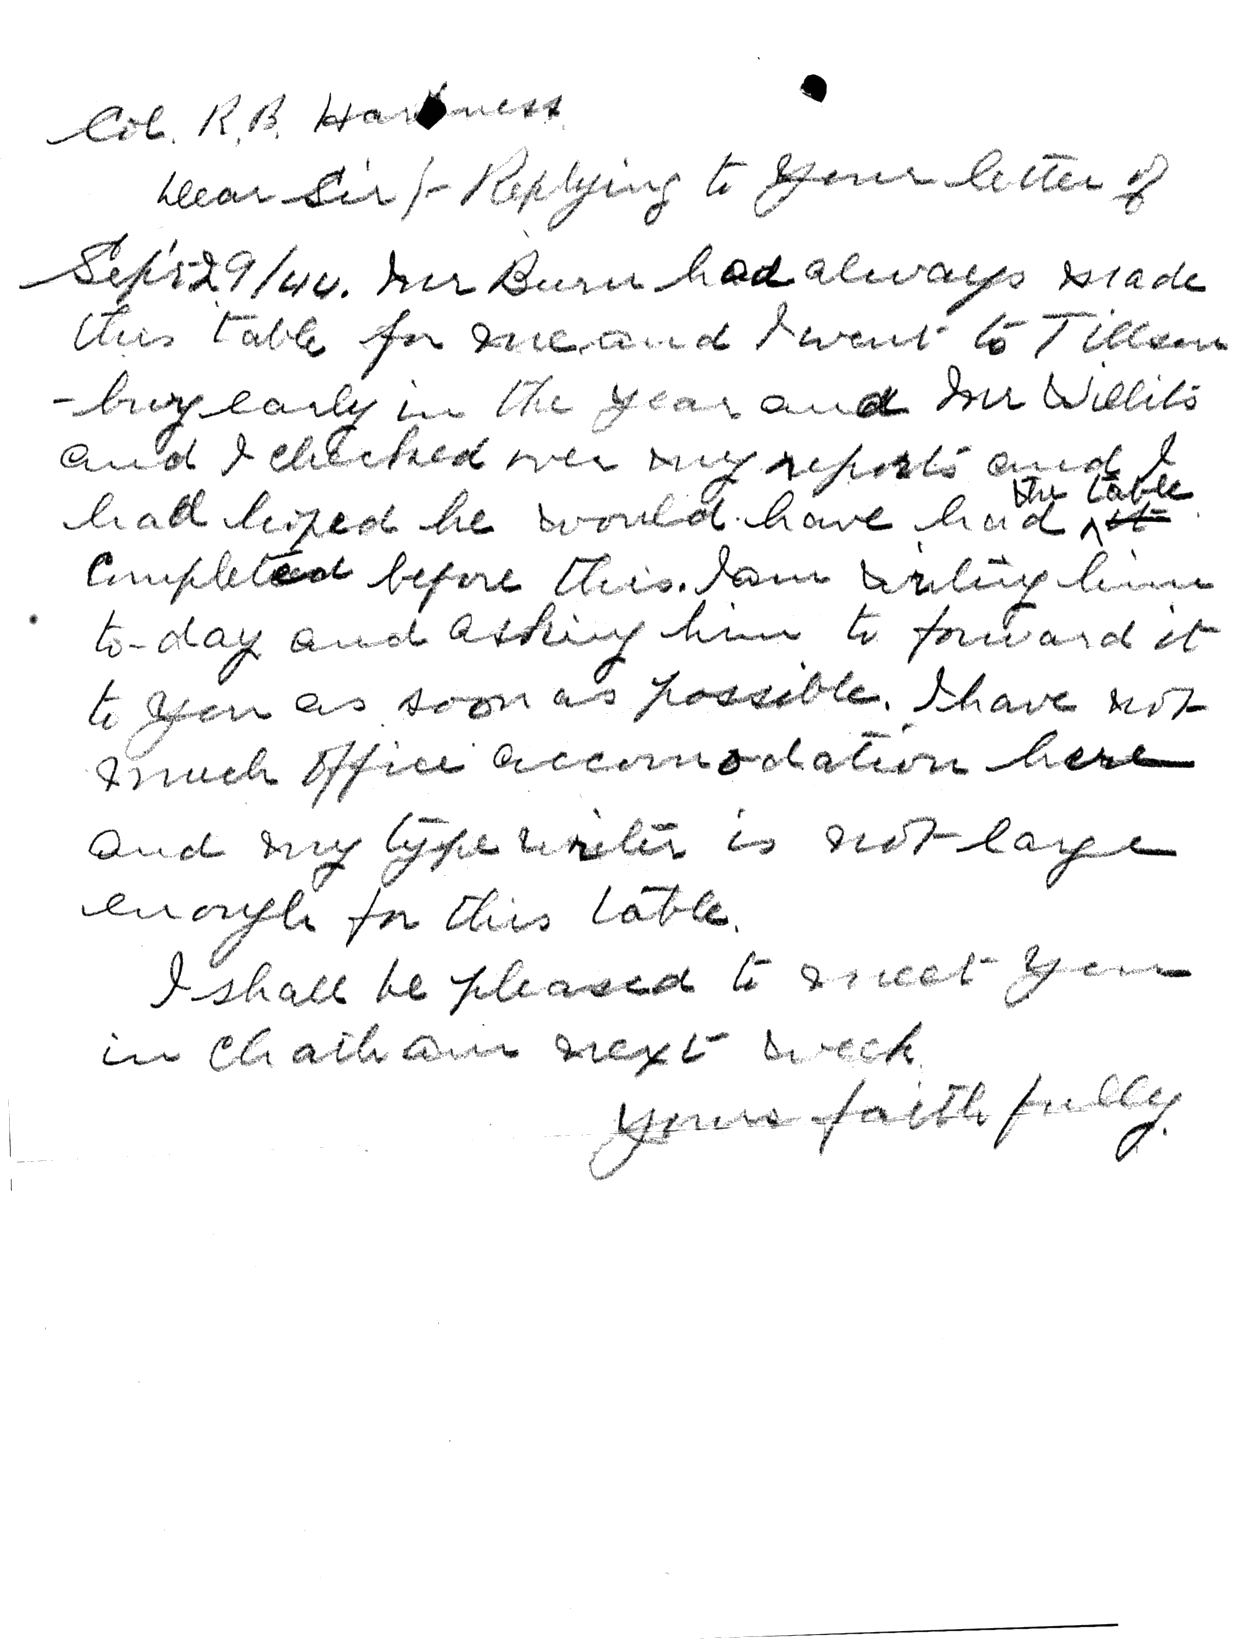 Col. R.B. Harkness
Dear Sir/- Replying to your letter of
Sept 29/44. Mr Burn had always made
this table for me and I went to Tillson
-burg early in the year and Mr Willits
and I checked over my reports and I
the table
had hoped he would have had ^ it
completed before this. I am writing him
to-day and asking him to forward it
to you as soon as possible. I have not
much office accomodation here
and my typewriter is not large
enough for this table.
I shall be pleased to meet you
in Chatham next week
Yours faithfully.